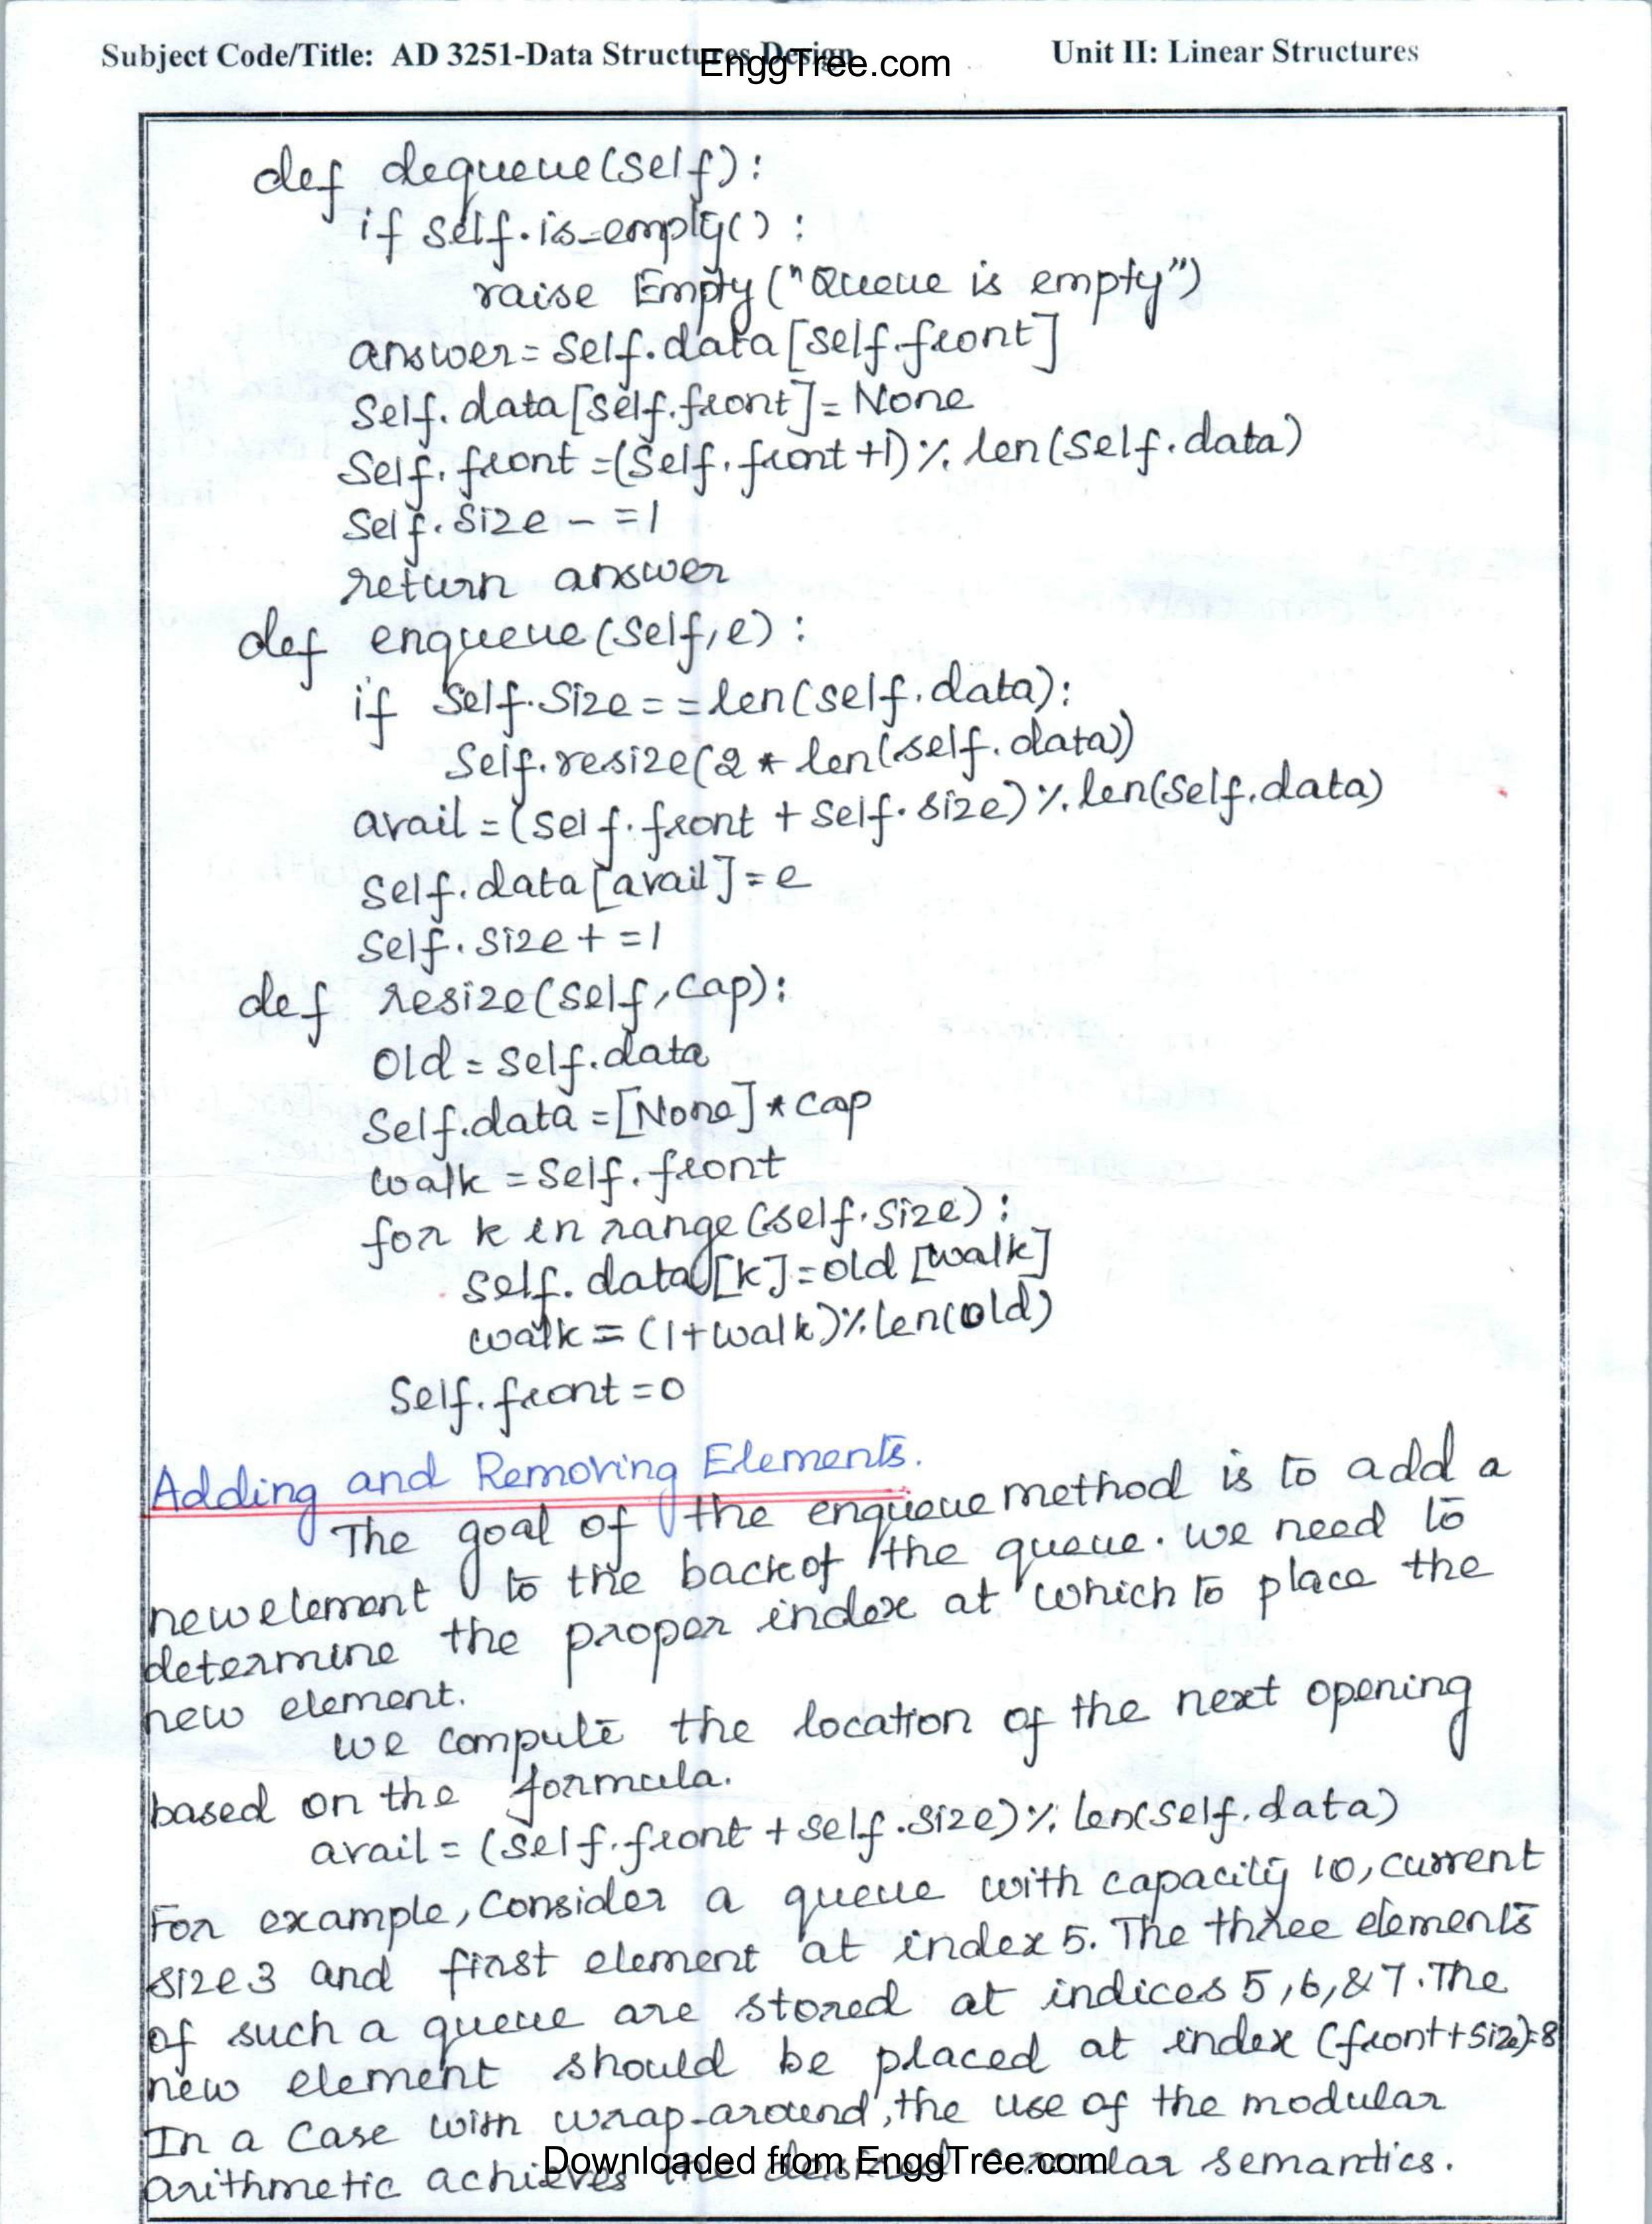 Subject Code/Title: AD 3251-Data Structures Design
EnggTree.com
Unit II: Linear Structures
def dequeue(self):
if self.is_empty():
raise Empty("Queue is empty")
answer=self.data[self.front]
self.data[self.front]=None
self.front=(self.front+1)%len(self.data)
self.size - =1
return answer
def enqueue(self,e):
if self.size= =len(self.data):
self.resize(2*len(self.data))
avail=(self.front + self.size)%len(self.data)
self.data[avail]=e
self.size + =1
def resize(self,cap):
old=self.data
self.data=[None]*cap
walk=self.front
for k in range(self.size):
self.data[k]=old[walk]
walk=(1+walk)%len(old)
self.front=0
Adding and Removing Elements.
The goal of the enqueue method is to add a
new element to the back of the queue. we need to
determine the proper index at which to place the
new element.
we compute the location of the next opening
based on the formula.
avail=(self.front+self.size)%len(self.data)
For example, Consider a queue with capacity 10, current
size 3 and first element at index 5. The three elements
of such a queue are stored at indices 5,6,&7. The
new element should be placed at index (front+size)=8
In a case with wrap-around, the use of the modular
arithmetic achieves the desired circular semantics.
Downloaded from EnggTree.com